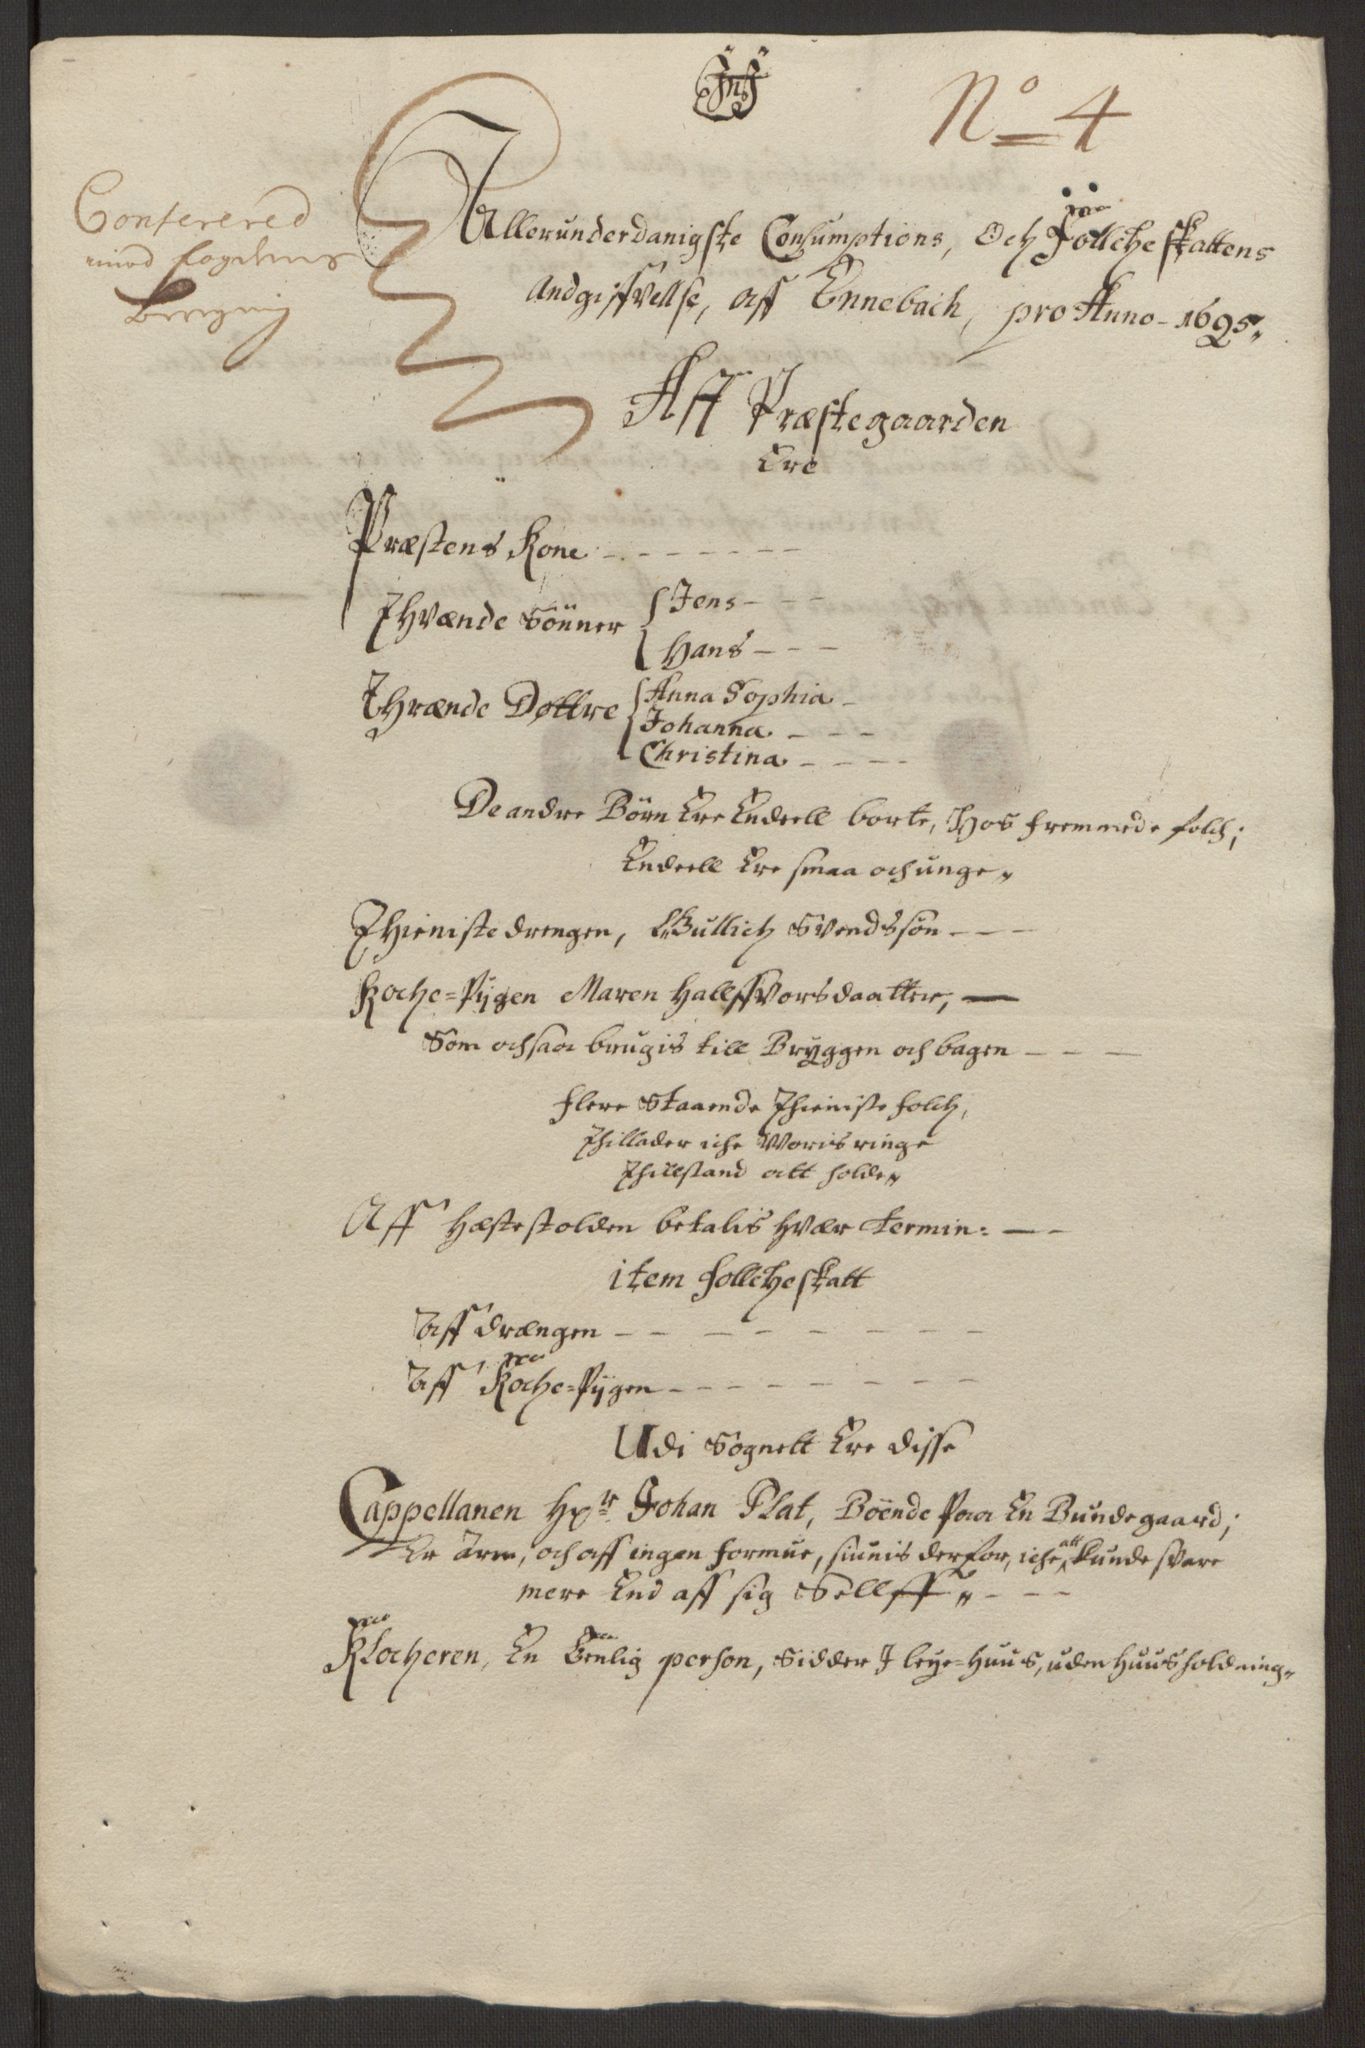 No 4
Conferered
med fogdens
Allerunderdanigste Consumptions, Och Follcheskattens
Andgiffvellse, aff Ennebach, pro Anno - 1695,,
Aff Præstegaarden
Ere
Præstens Kone - - - - - - -
Thvænde Sönner { Jens - - -
{ Hans - - -
Thrænde Døttre { Anna Sophia -
Johanna - - -
Christina - - - -
De andre Börn Ere Endeell borte, Hos fremmede folch;
Endeell Ere smaa och unge,,
Thienistedrengen, Gullich Svendssön - - -
Koche=Pigen Maren Hallffvorsdaatter, —
Som ochsaa brugis till Bryggen och bagen - - -
flere Staaende Thienistefolch,
Thillader iche Voris ringe
Thillstand att holde,,
Aff Hæstestolden betalis hvær Termin: — -
item follcheskatt
Aff drængen - - - - - - - -
Aff Koche=Pigen - - - - - - - -
Udi Sognett Ere disse
Cappellanen Hr Johan Plat, Böende Paa En Bundegaard;
Er Arm, och aff ingen formue, siunis derfor, iche att kunde svare
mere End aff sig Sellff,, - - -
Klocheren, En Eenlig person, Sidder I leye=Huus, uden Huusholdning,,